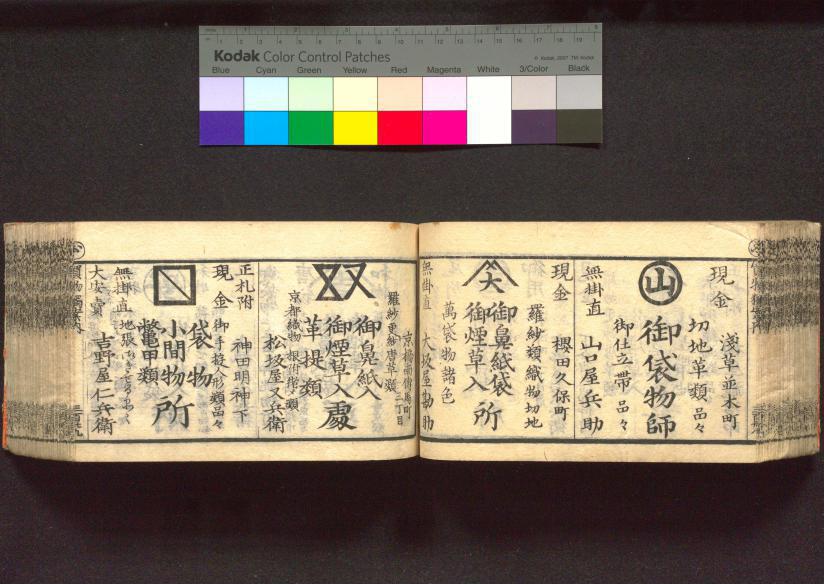 Kodak Color Control Patches
© Kodak, 2007 TM: Kodak
Blue Cyan Green Yellow Red Magenta White 3/Color Black
現金
淺草並木町
切地革類品々
山
御袋物師
御仕立帯品々
無掛直
山口屋兵助
現金
櫻田久保町
羅紗類織物切地
大
御鼻紙袋
御煙草入
所
萬袋物諸色
無掛直
大坂屋勘助
京橋南傳馬町
三丁目
羅紗更紗唐革類
又
御鼻紙入
御煙草入
處
革提類
京都織物
松坂屋又兵衛
正札附
現金
神田明神下
御手遊人形類品々
袋物
小間物
鼈甲類
所
無掛直
大安賣
吉野屋仁兵衛